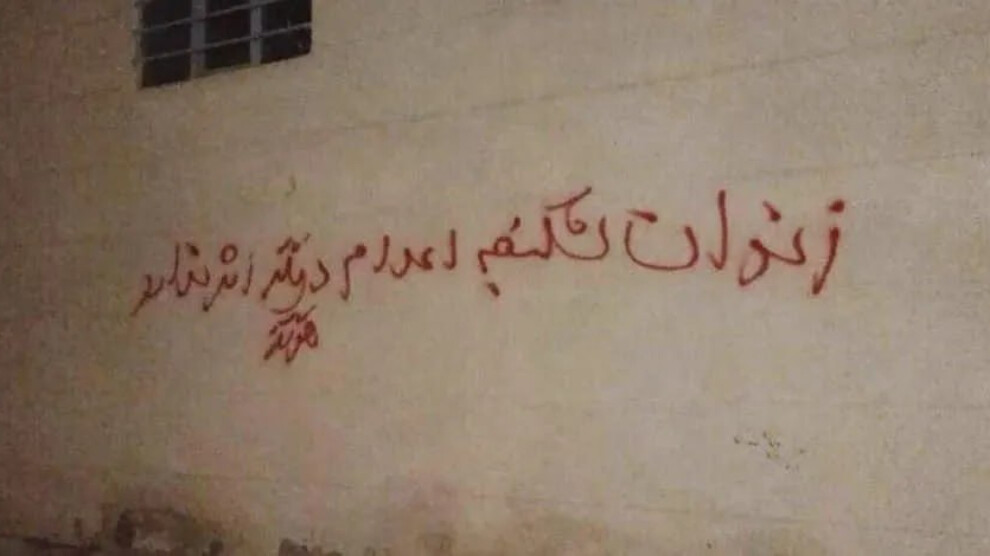 زندان شکنجه اعدام دیگر اثر ندارد